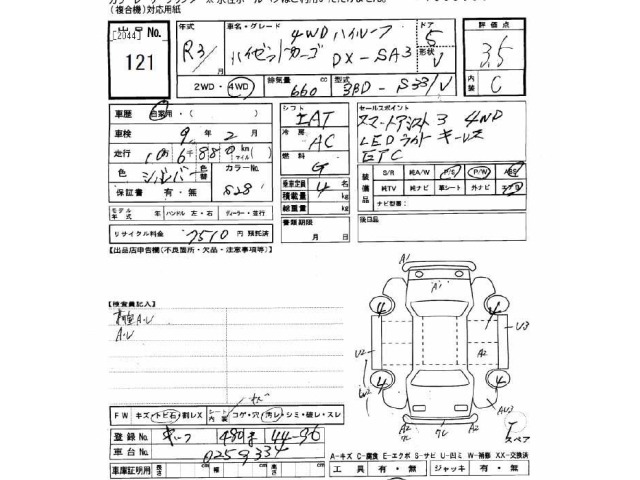 (複合機)対応用紙
出品No.
[2044]
121
年式
R3/
車名・グレード
4WDハイルーフ
ハイゼットカーゴ DX-SA3
ドア
5
形状
V
評価点
3.5
内装
C
2WD・4WD
排気量
660
cc
型式
3BD-S331V
車歴 自家用・( )
車検 9年2月
走行
km
マイル
色 シルバー
色替
カラーNo.
S28
保証書 有・無
モデル年式 年 ハンドル 左・右 ディーラー・並行
リサイクル料金 7510円 預託済
シフト
IAT
冷房
AC
燃料
G
乗車定員 4 名
積載量 kg
総重量 kg
書類期限
月 日
セールスポイント
スマートアシスト3 4WD
LEDライト キーレス
ETC
装備品
S/R 純A/W P/S P/W ABS
純TV 純ナビ 革シート 外ナビ エアB
ナビ型番:
後日品
【出品店申告欄(不良箇所・欠品・注意事項等)】
【検査員記入】
荷室A・U
A・U
FW キズ・トビ石・割レX
シート内装 コゲ・穴・汚レ・シミ・破レ・スレ
登録No.
480
44-96
車台No. 0259334
車庫証明用 長さ cm 幅 cm 高さ cm
A1
A1
4
4
U3
U2
A2
W2
4
4
AU3
A2
A2
スペア
A-キズ C-腐食 E-エクボ S-サビ U-凹ミ W-補修 XX-交換済
工具 有・無 ジャッキ 有・無